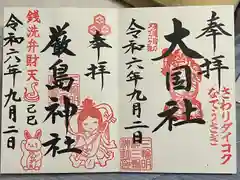 奉拝
さわりダイコク
なでうさぎ
大国社
令和六年九月二日
奉拝
厳島神社
銭洗弁財天
己巳
令和六年九月二日